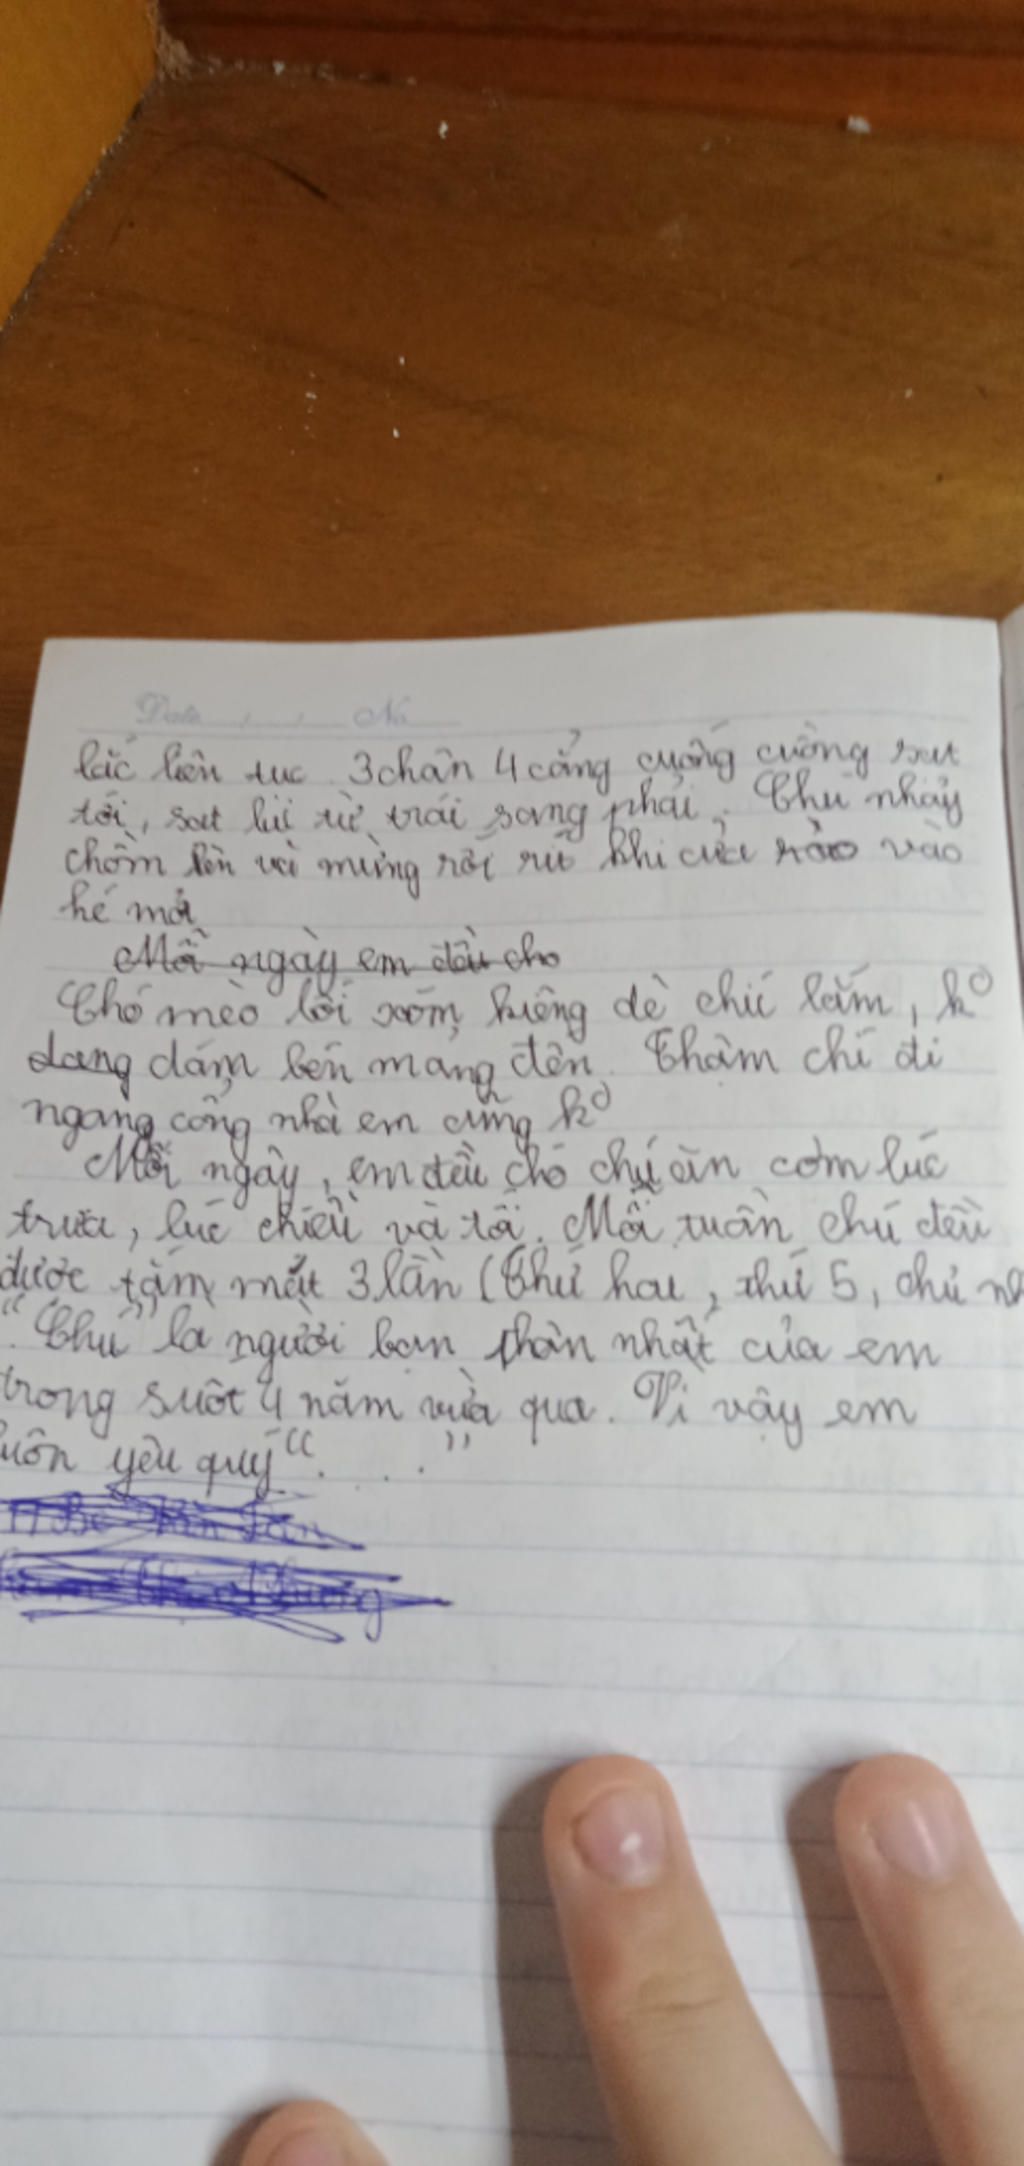 Date , , No
lắc liên tục. 3 chân 4 cẳng cuống cuồng sut
tới, sut lùi từ trái sang phải. Chú nhảy
chồm lên vì mừng rối rít khi cửa rào vào
hé mở
Mỗi ngày em đều cho
Chó mèo lối xóm kiêng dè chú lắm, ko
dang dám bén mảng đến. Thậm chí đi
ngang cổng nhà em cũng ko
Mỗi ngày, em đều cho chú ăn cơm lúc
trưa, lúc chiều và tối. Mỗi tuần chú đều
được tắm mát 3 lần (Thứ hai, thứ 5, chủ nh
"Chú" là người bạn thân nhất của em
trong suốt 4 năm vừa qua. Vì vậy em
uôn yêu quý "...."